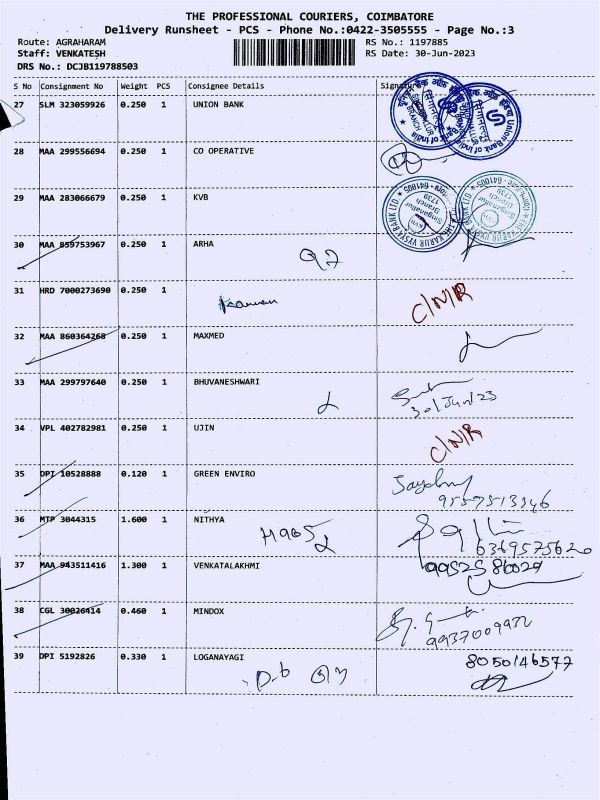 THE PROFESSIONAL COURIERS, COIMBATORE
Delivery Runsheet - PCS - Phone No.:0422-3505555 - Page No.:3
Route: AGRAHARAM RS No.: 1197885
Staff: VENKATESH RS Date: 30-Jun-2023
DRS No.: DCJB119788503
S No Consignment No Weight PCS Consignee Details Signature
27 SLM 323059926 0.250 1 UNION BANK
Union Bank of India
28 MAA 299556694 0.250 1 CO OPERATIVE
29 MAA 283066679 0.250 1 KVB
THE KARUR VYSYA BANK LTD
Singanallur
Branch
1739
30 MAA 859753967 0.250 1 ARHA
31 HRD 7000273690 0.250 1 C/N/R
32 MAA 860364268 0.250 1 MAXMED
33 MAA 299797640 0.250 1 BHUVANESHWARI
30/Jun/23
34 VPL 402782981 0.250 1 UJIN C/N/R
35 DPI 10528888 0.120 1 GREEN ENVIRO
9597513346
36 MTP 3044315 1.600 1 NITHYA
6369575620
37 MAA 943511416 1.300 1 VENKATALAKHMI 9952586029
38 CGL 30026414 0.460 1 MINDOX
9937009932
39 DPI 5192826 0.330 1 LOGANAYAGI 8050146577